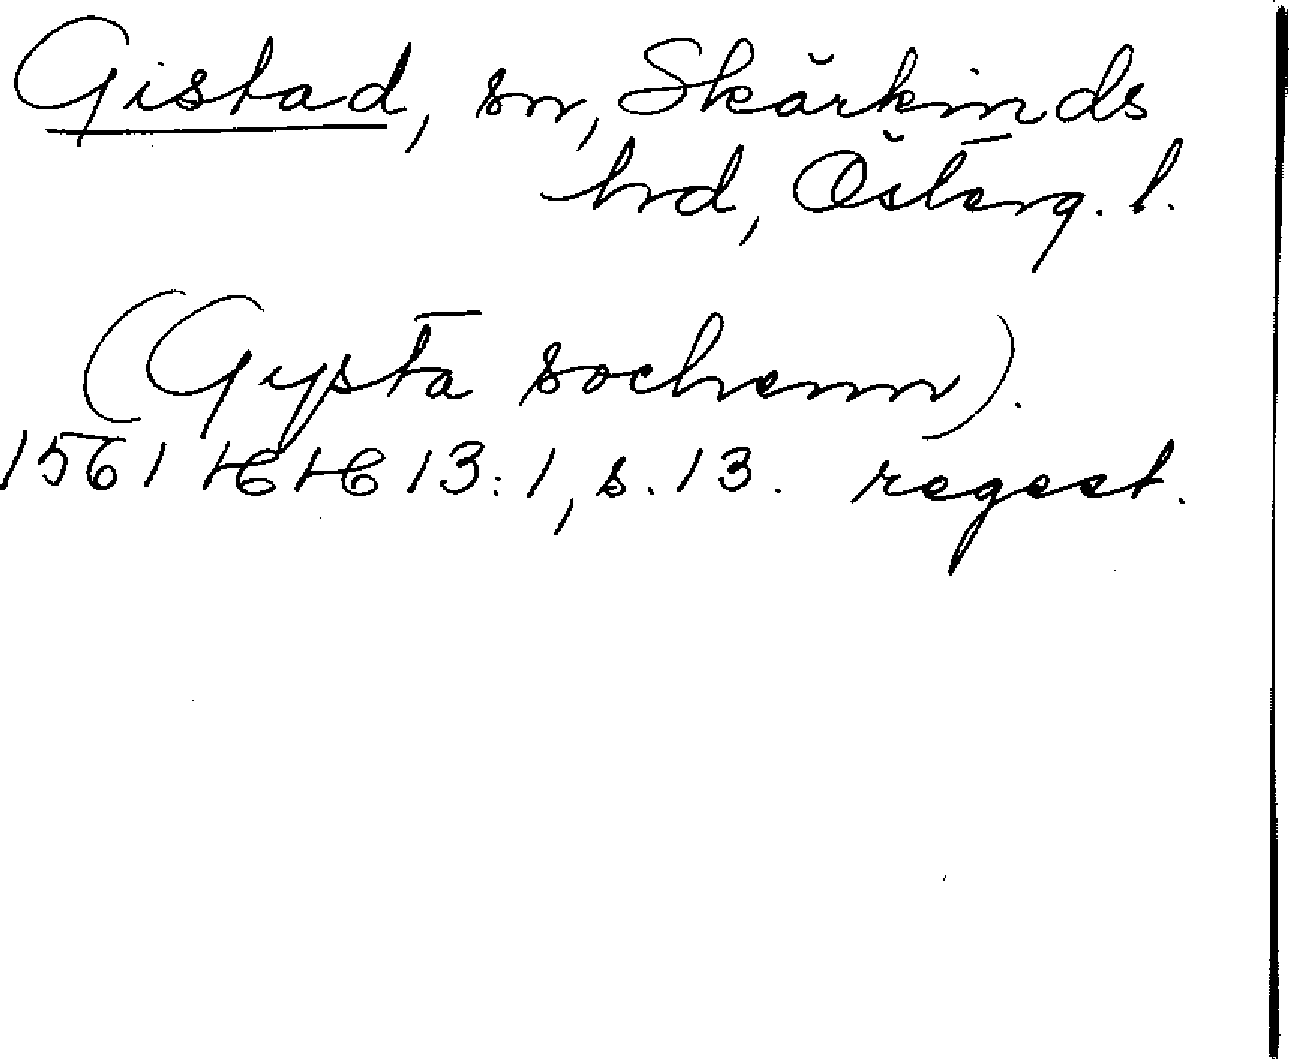 Gistad, sn, Skärkinds
hrd, Österg. l.
(Gysta sochenn).
1561 HH 13:1, s. 13. regest.